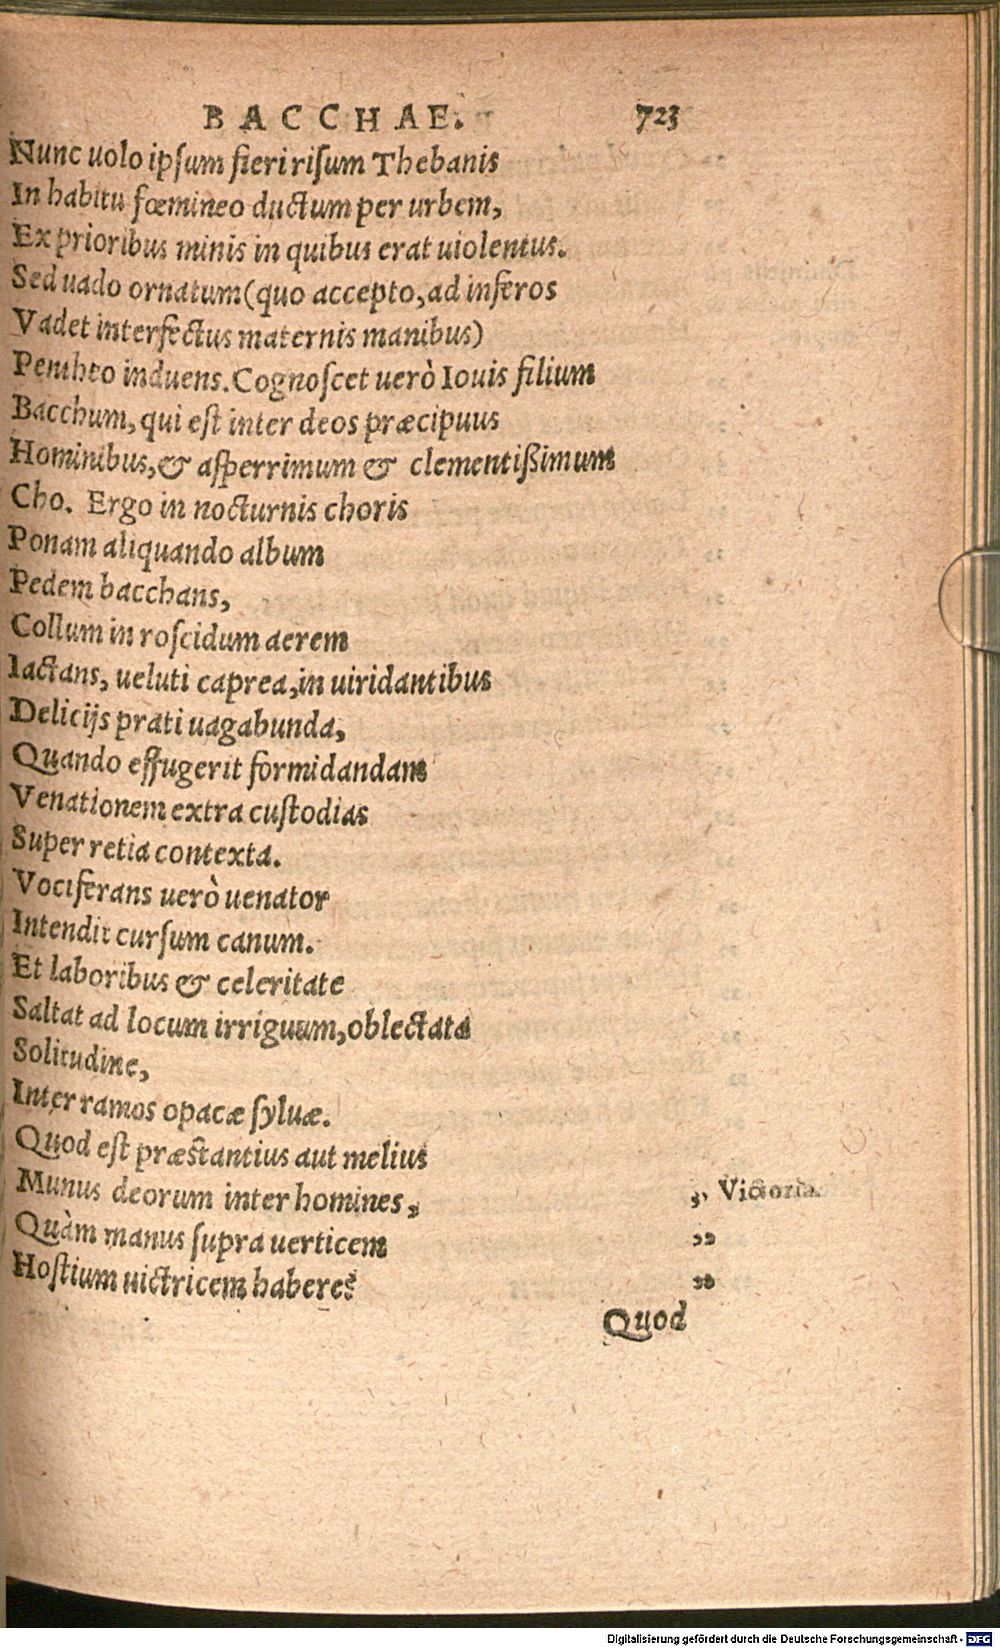 BACCHAE. 723
Nunc uolo ipſum fieri riſum Thebanis
In habitu fœmineo ductum per urbem,
Ex prioribus minis in quibus erat uiolentus.
Sed uado ornatum (quo accepto, ad inferos
Vadet interfectus maternis manibus)
Pentheo induens. Cognoſcet uerò Iouis filium
Bacchum, qui eſt inter deos præcipuus
Hominibus, & aſperrimum & clementißimum
Cho. Ergo in nocturnis choris
Ponam aliquando album
Pedem bacchans,
Collum in roſcidum aerem
Iactans, ueluti caprea, in uiridantibus
Delicijs prati uagabunda,
Quando effugerit formidandam
Venationem extra cuſtodias
Super retia contexta.
Vociferans uerò uenator
Intendit curſum canum.
Et laboribus & celeritate
Saltat ad locum irriguum, oblectata
Solitudine,
Inter ramos opacæ ſyluæ.
Quod eſt præſtantius aut melius
Munus deorum inter homines, ,, Victoria.
Quàm manus ſupra uerticem ,,
Hoſtium uictricem habere? ,,
Quod
Digitalisierung gefördert durch die Deutsche Forschungsgemeinschaft - DFG